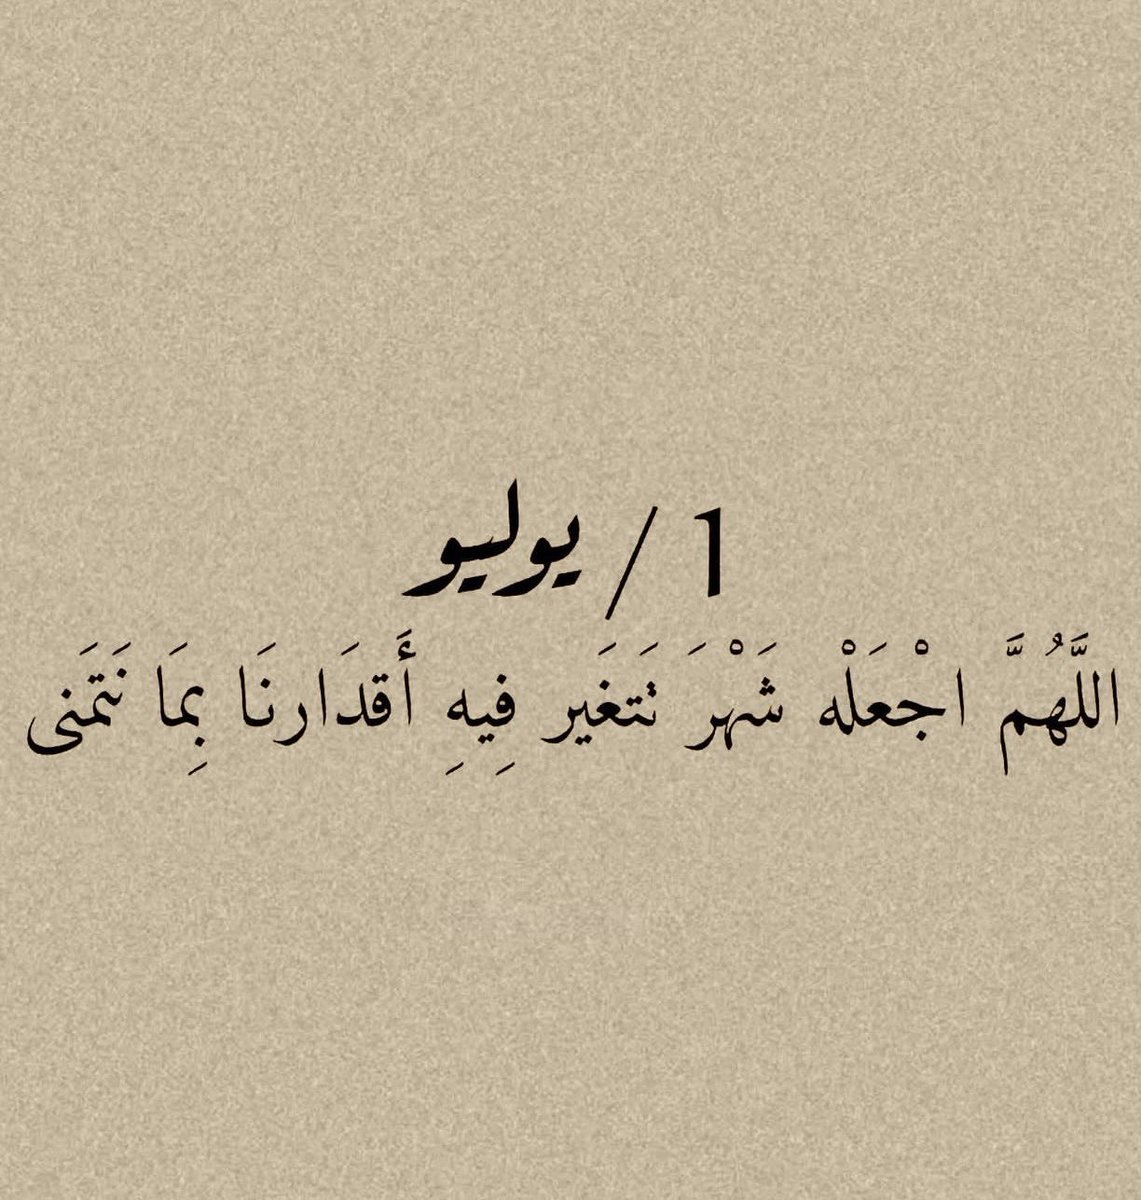 1 / يوليو
اللَّهُمَّ اجْعَلْه شَهْرَ تَتَغَير فِيهِ أَقدَارنَا بِمَا نَتَمَنى